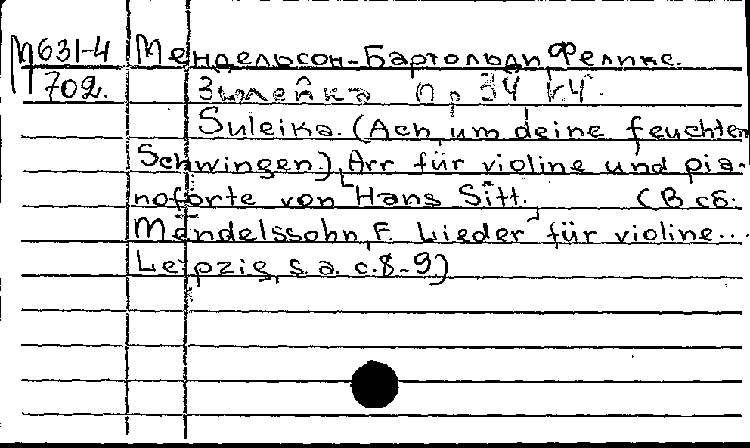 М631-4 Мендельсон-Бартольди, Феликс.
702. Зюлейка Op 34 №4.
Suleika. (Ach, um deine feuchten
Schwingen), Arr für violine und pia-
noforte von Hans Sitt. (В сб:
Mendelssohn, F. Lieder für violine...
Leipzig, s. a. c. 8-9)